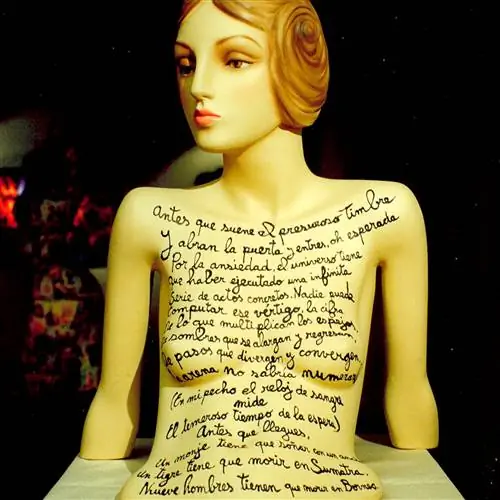 Antes que suene el presuroso timbre
Y abran la puerta y entres, oh esperada
Por la ansiedad, el universo tiene
que haber ejecutado una infinita
Serie de actos concretos. Nadie puede
computar ese vértigo, la cifra
De lo que multiplican los espejos,
De sombras que se alargan y regresan,
De pasos que divergen y convergen.
arena no sabría numerar
(En mi pecho el reloj de sangre
mide
El temeroso tiempo de la espera)
Antes que llegues,
Un monje tiene que soñar con un
un tigre tiene que morir en Sumatra,
Nueve hombres tienen que morir en Borneo.